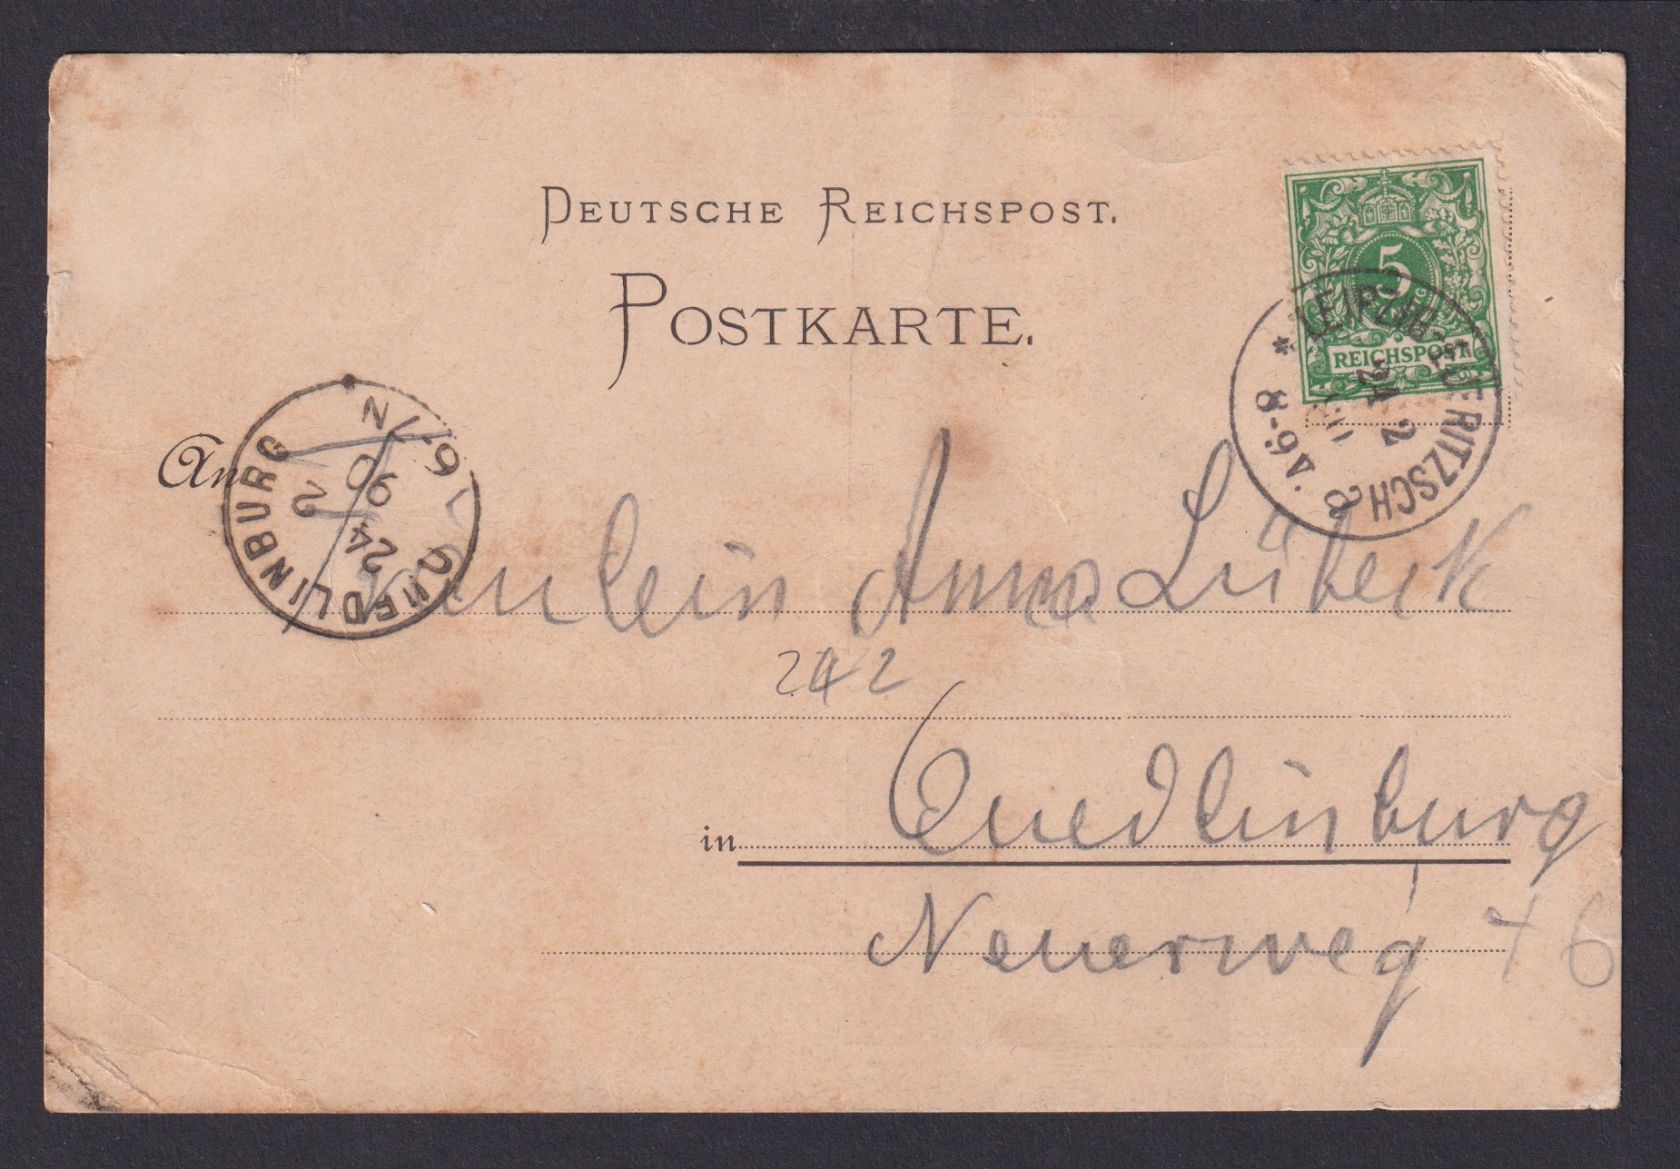 DEUTSCHE REICHSPOST.
POSTKARTE.
5
REICHSPOST
LEIPZIG-EUTRITZSCH
24 2
8-9V.
An
QUEDLINBURG
24 2
6-7N
Fräulein Anna Lübeck
242
in Quedlinburg
Neuerweg 46